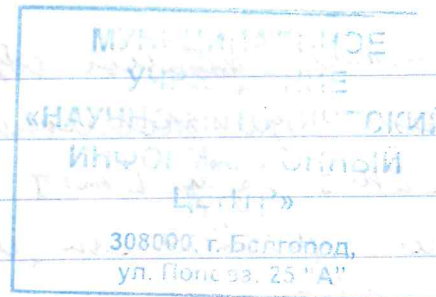 МУНИЦИПАЛЬНОЕ
УЧРЕЖДЕНИЕ
«НАУЧНО
ИНФОРМАЦИОННЫЙ
ЦЕНТР»
308000, г. Белгород,
ул. Попова, 25 "А"